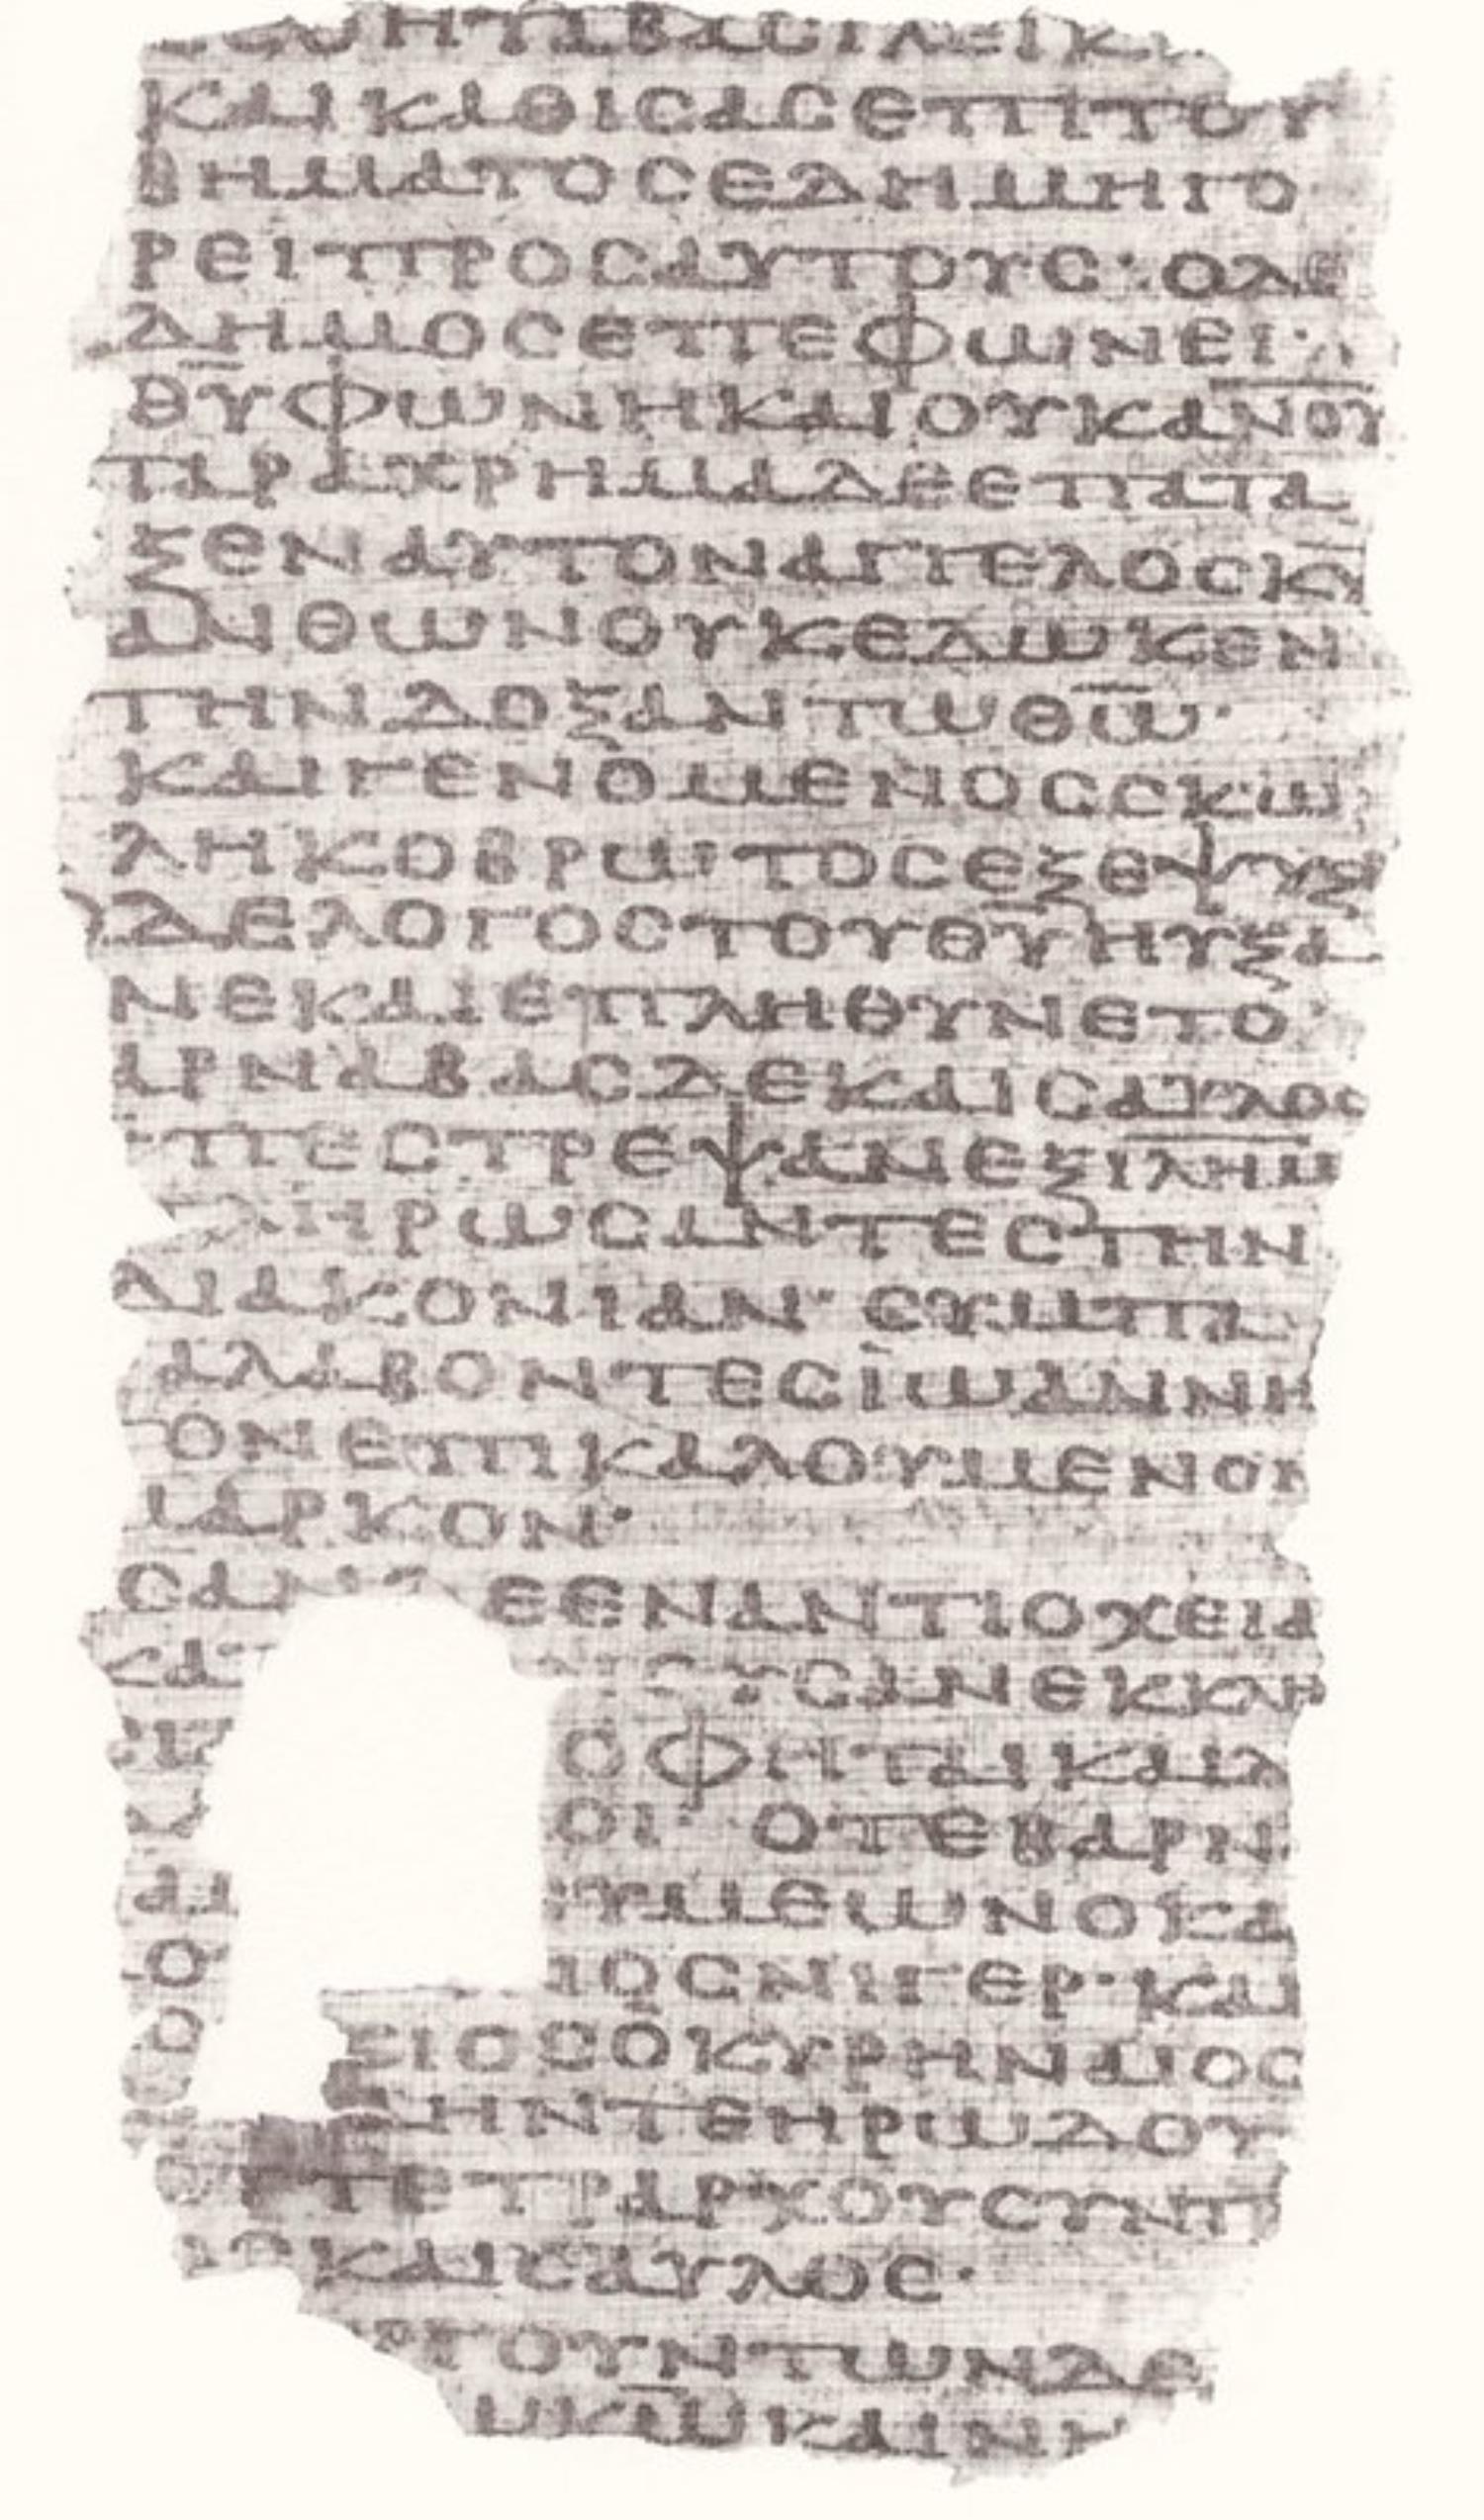 ϹΘΗΤΑΒΑϹΙΛΕΙΚ
ΚΑΙΚΑΘΙϹΑϹΕΠΙΤΟΥ
ΒΗΜΑΤΟϹΕΔΗΜΗΓΟ
ΡΕΙΠΡΟϹΑΥΤΟΥϹ·ΟΔΕ
ΔΗΜΟϹΕΠΕΦΩΝΕΙ·
Θ̅Υ̅ΦΩΝΗΚΑΙΟΥΚΑ̅Ν̅Ο̅Υ̅
ΠΑΡΑΧΡΗΜΑΔΕΕΠΑΤΑ
ΞΕΝΑΥΤΟΝΑΓΓΕΛΟϹΚ̅Υ̅
ΑΝΘΩΝΟΥΚΕΔΩΚΕΝ
ΤΗΝΔΟΞΑΝΤΩΘ̅Ω̅·
ΚΑΙΓΕΝΟΜΕΝΟϹϹΚΩ
ΛΗΚΟΒΡΩΤΟϹΕΞΕΨΥΞ
ΟΔΕΛΟΓΟϹΤΟΥΘ̅Υ̅ΗΥΞΑ
ΝΕΚΑΙΕΠΛΗΘΥΝΕΤΟ
ΑΡΝΑΒΑϹΔΕΚΑΙϹΑΥΛΟϹ
ΠΕϹΤΡΕΨΑΝΕΞΙ̅Λ̅Η̅Μ̅
ΛΗΡΩϹΑΝΤΕϹΤΗΝ
ΔΙΑΚΟΝΙΑΝ· ϹΥΜΠΑ
ΑΛΑΒΟΝΤΕϹΪΩΑΝΝΗ
ΟΝΕΠΙΚΑΛΟΥΜΕΝΟΝ
ΜΑΡΚΟΝ·
ϹΑΝ ΕΕΝΑΝΤΙΟΧΕΙΑ
ΚΑΤ ΟΥϹΑΝΕΚΚΛΗ
ΟΦΗΤΑΙΚΑΙΔ
Κ ΟΙ· ΟΤΕΒΑΡΝ
ΑΙ ΥΜΕΩΝΟΚΑ
Ο ΙΟϹΝΙΓΕΡ·ΚΑΙ
Ο ΚΙΟϹΟΚΥΡΗΝΑΙΟϹ
ΑΗΝΤΕΗΡΩΔΟΥ
ΤΕΤΡΑΡΧΟΥϹΥΝΤΡ
ΚΑΙϹΑΥΛΟϹ·
ΡΓΟΥΝΤΩΝΔΕ
ΩΚ̅Ω̅ΚΑΙΝΗ